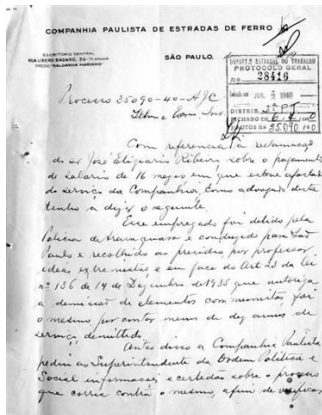 COMPANHIA PAULISTA DE ESTRADAS DE FERRO
ESCRITORIO CENTRAL
RUA LIBERO BADARÓ, 39
PREDIO "SALDANHA MARINHO"
SÃO PAULO,
DEPART. ESTADUAL DO TRABALHO
PROTOCOLO GERAL
Nº 28416
JUL. 1940
DISTRIB.
FICHADO EM
AUTOS Nº 35090
Processo 35090-40-AJC
Ilmo e Exmo Snr
Com referencia á reclamação
do sr José Ribeiro sobre o pagamento
de salario de 16 mezes em que esteve afastado
do serviço da Companhia, como advogado desta
tenho a dizer o seguinte.
Esse empregado foi detido pela
Policia de Araraquara e conduzido para São
Paulo e recolhido ao presidio por professar
ideas extremistas, e em face do Art 23 da lei
nº 136 de 14 de Dezembro de 1935 que autoriza
a demissão de elementos communistas, foi
o mesmo por contar menos de dez annos de
serviço demittido.
Antes disso a Companhia Paulista
pediu ao Superintendente da Ordem Politica e
Social informações e certidão sobre o processo
que corria contra o mesmo, afim de verificar